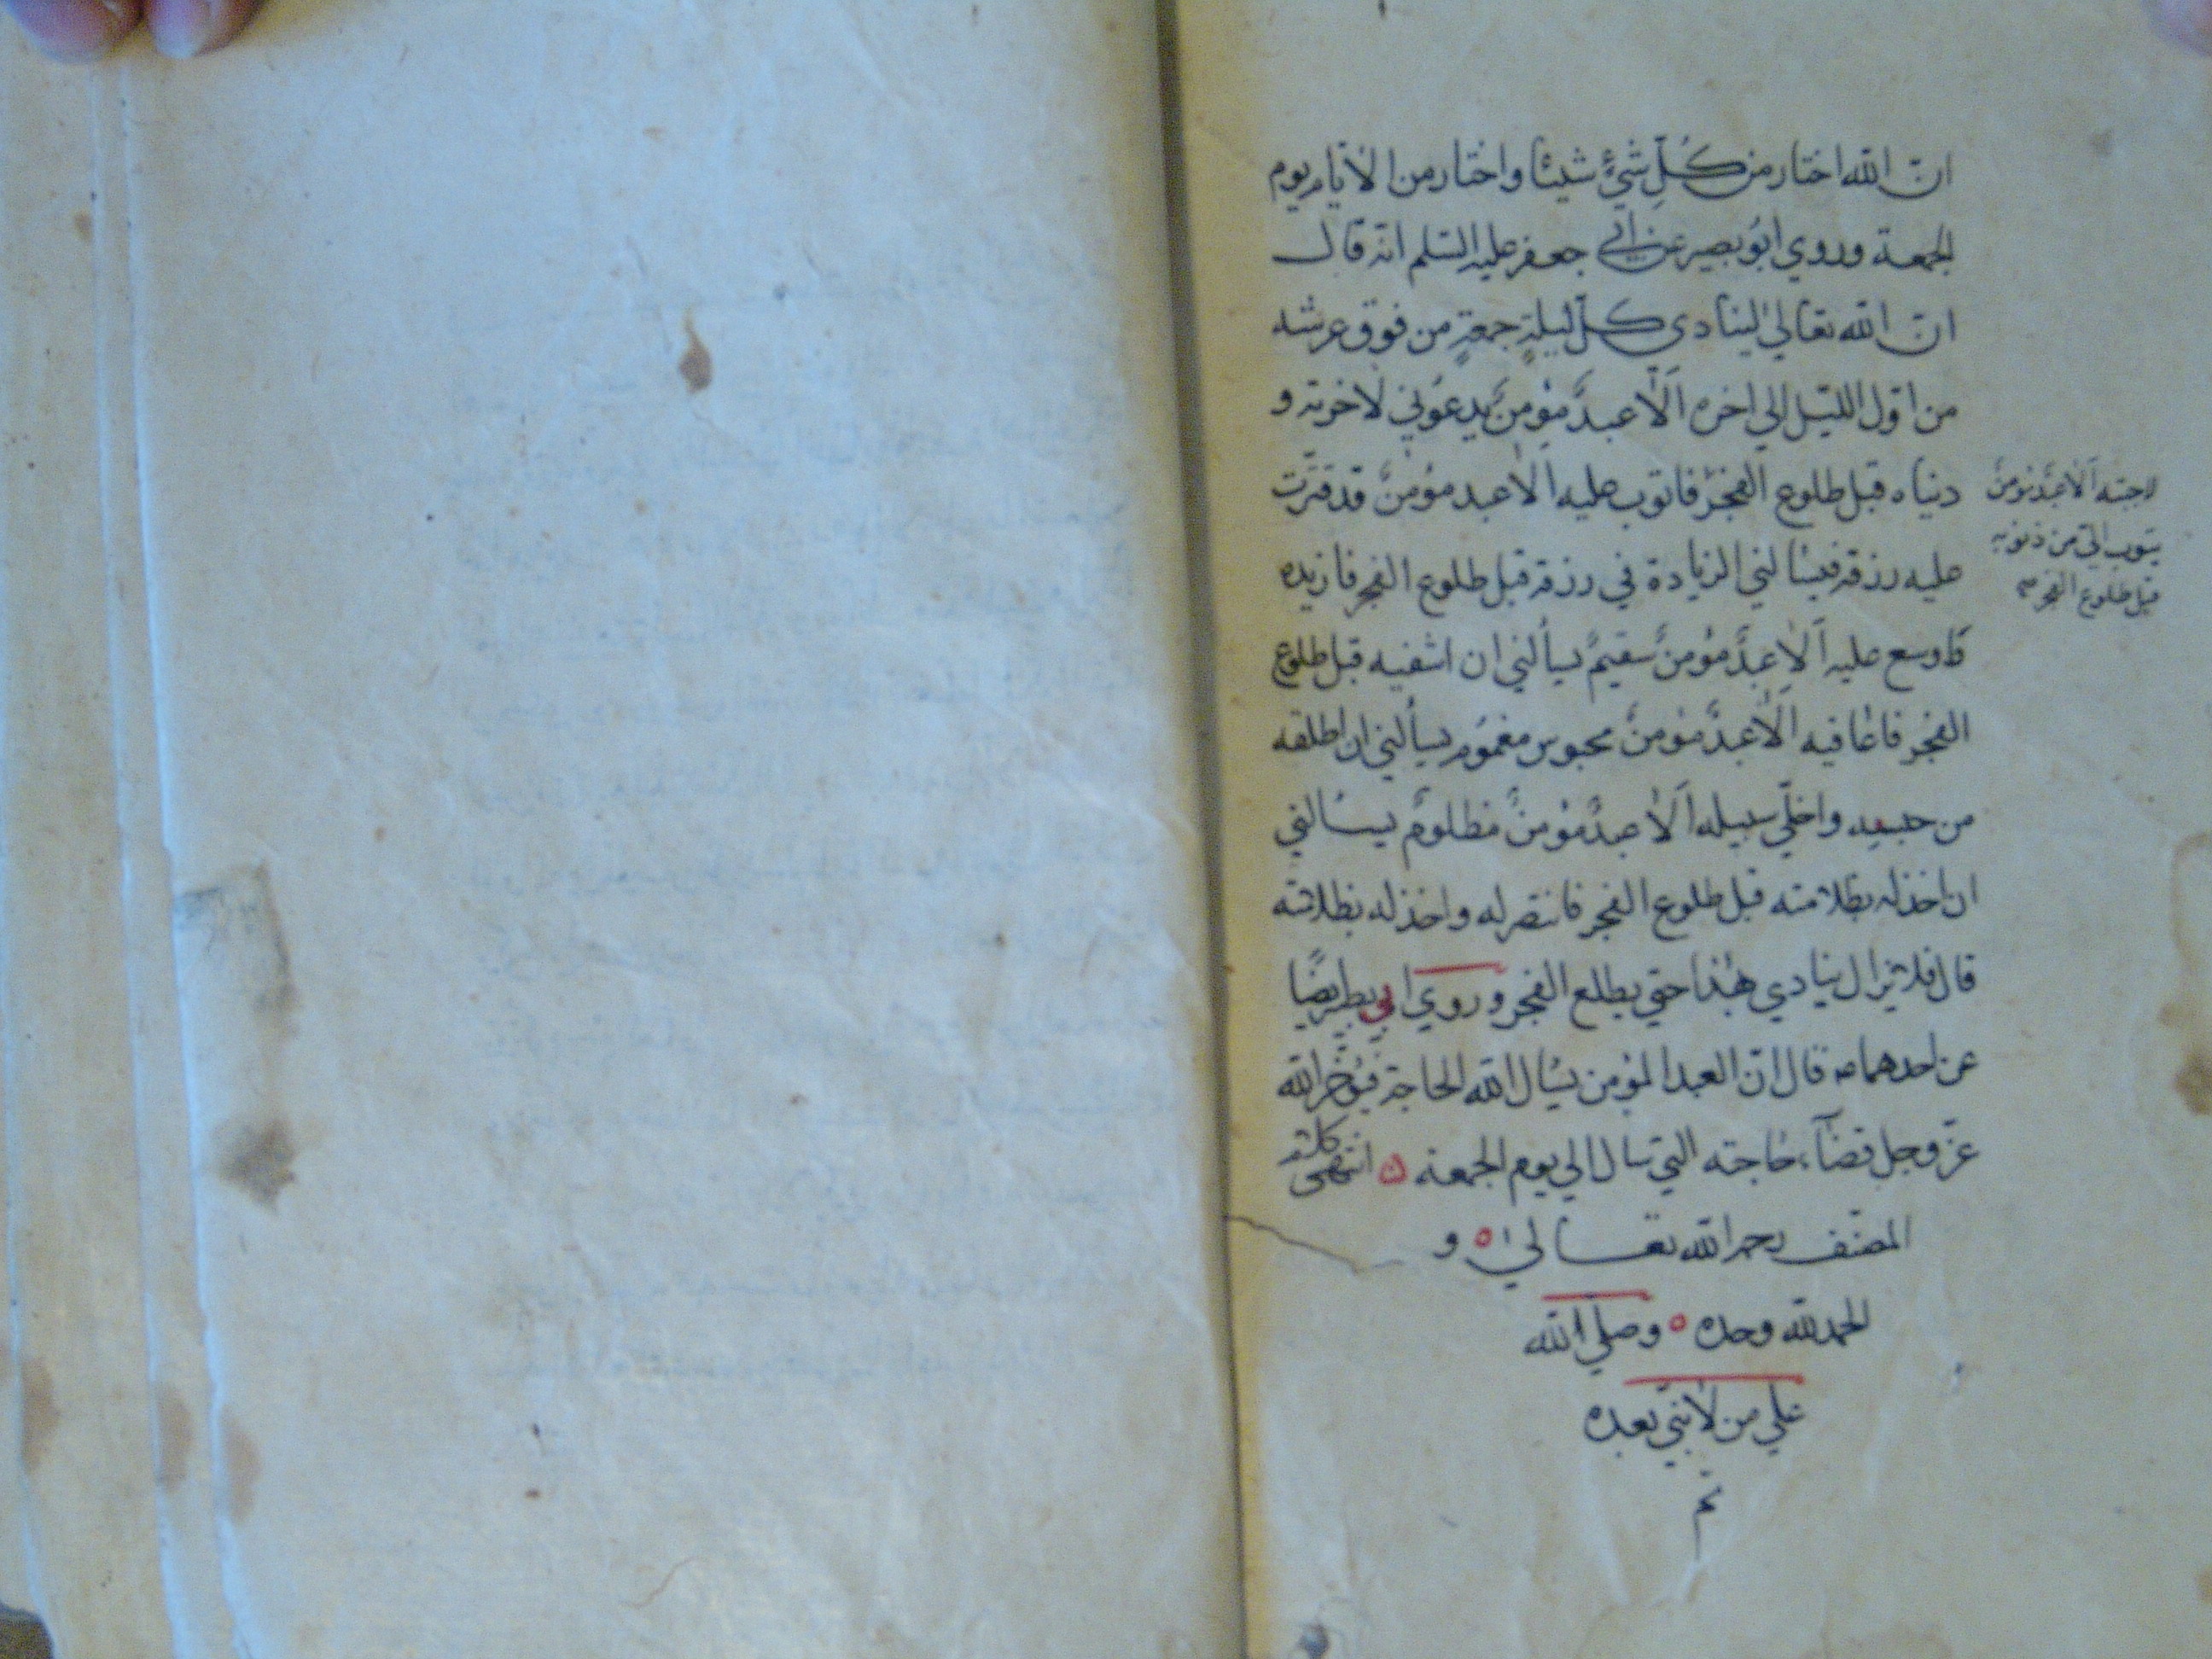 ان الله اختار من كل شيء شيئا واختار من الايام يوم
الجمعة وروي ابو بصير عن ابي جعفر عليه السلم انه قال
ان الله تعالي لينادي كل ليلة جمعة من فوق عرشه
من اول الليل الي اخره الا عبد مؤمن يدعوني لاخرته و
دنياه قبل طلوع الفجر فاتوب عليه الا عبد مؤمن قد قترت
عليه رزقه فيسالني الزيادة في رزقه قبل طلوع الفجر فازيده
واوسع عليه الا عبد مؤمن سقيم يسألني ان اشفيه قبل طلوع
الفجر فاعافيه الا عبد مؤمن محبوس مغموم يسألني ان اطلقه
من حبسه واخلي سبيله الا عبد مؤمن مظلوم يسالني
ان اخذ له بظلامته قبل طلوع الفجر فانتصر له واخذ له بظلامته
قال فلا يزال ينادي هذا حتي يطلع الفجر وروي ابي بصير ايضا
عن احدهما قال ان العبد المؤمن يسال الله الحاجة فيؤخر الله
عز وجل قضاء حاجته التي سال الي يوم الجمعة انتهى كلام
المصنف رحمه الله تعالي و
الحمد لله وحده وصلي الله
علي من لا نبي بعده
تم
لاجبته الا عبد مؤمن
يتوب الي من ذنوبه
قبل طلوع الفجر